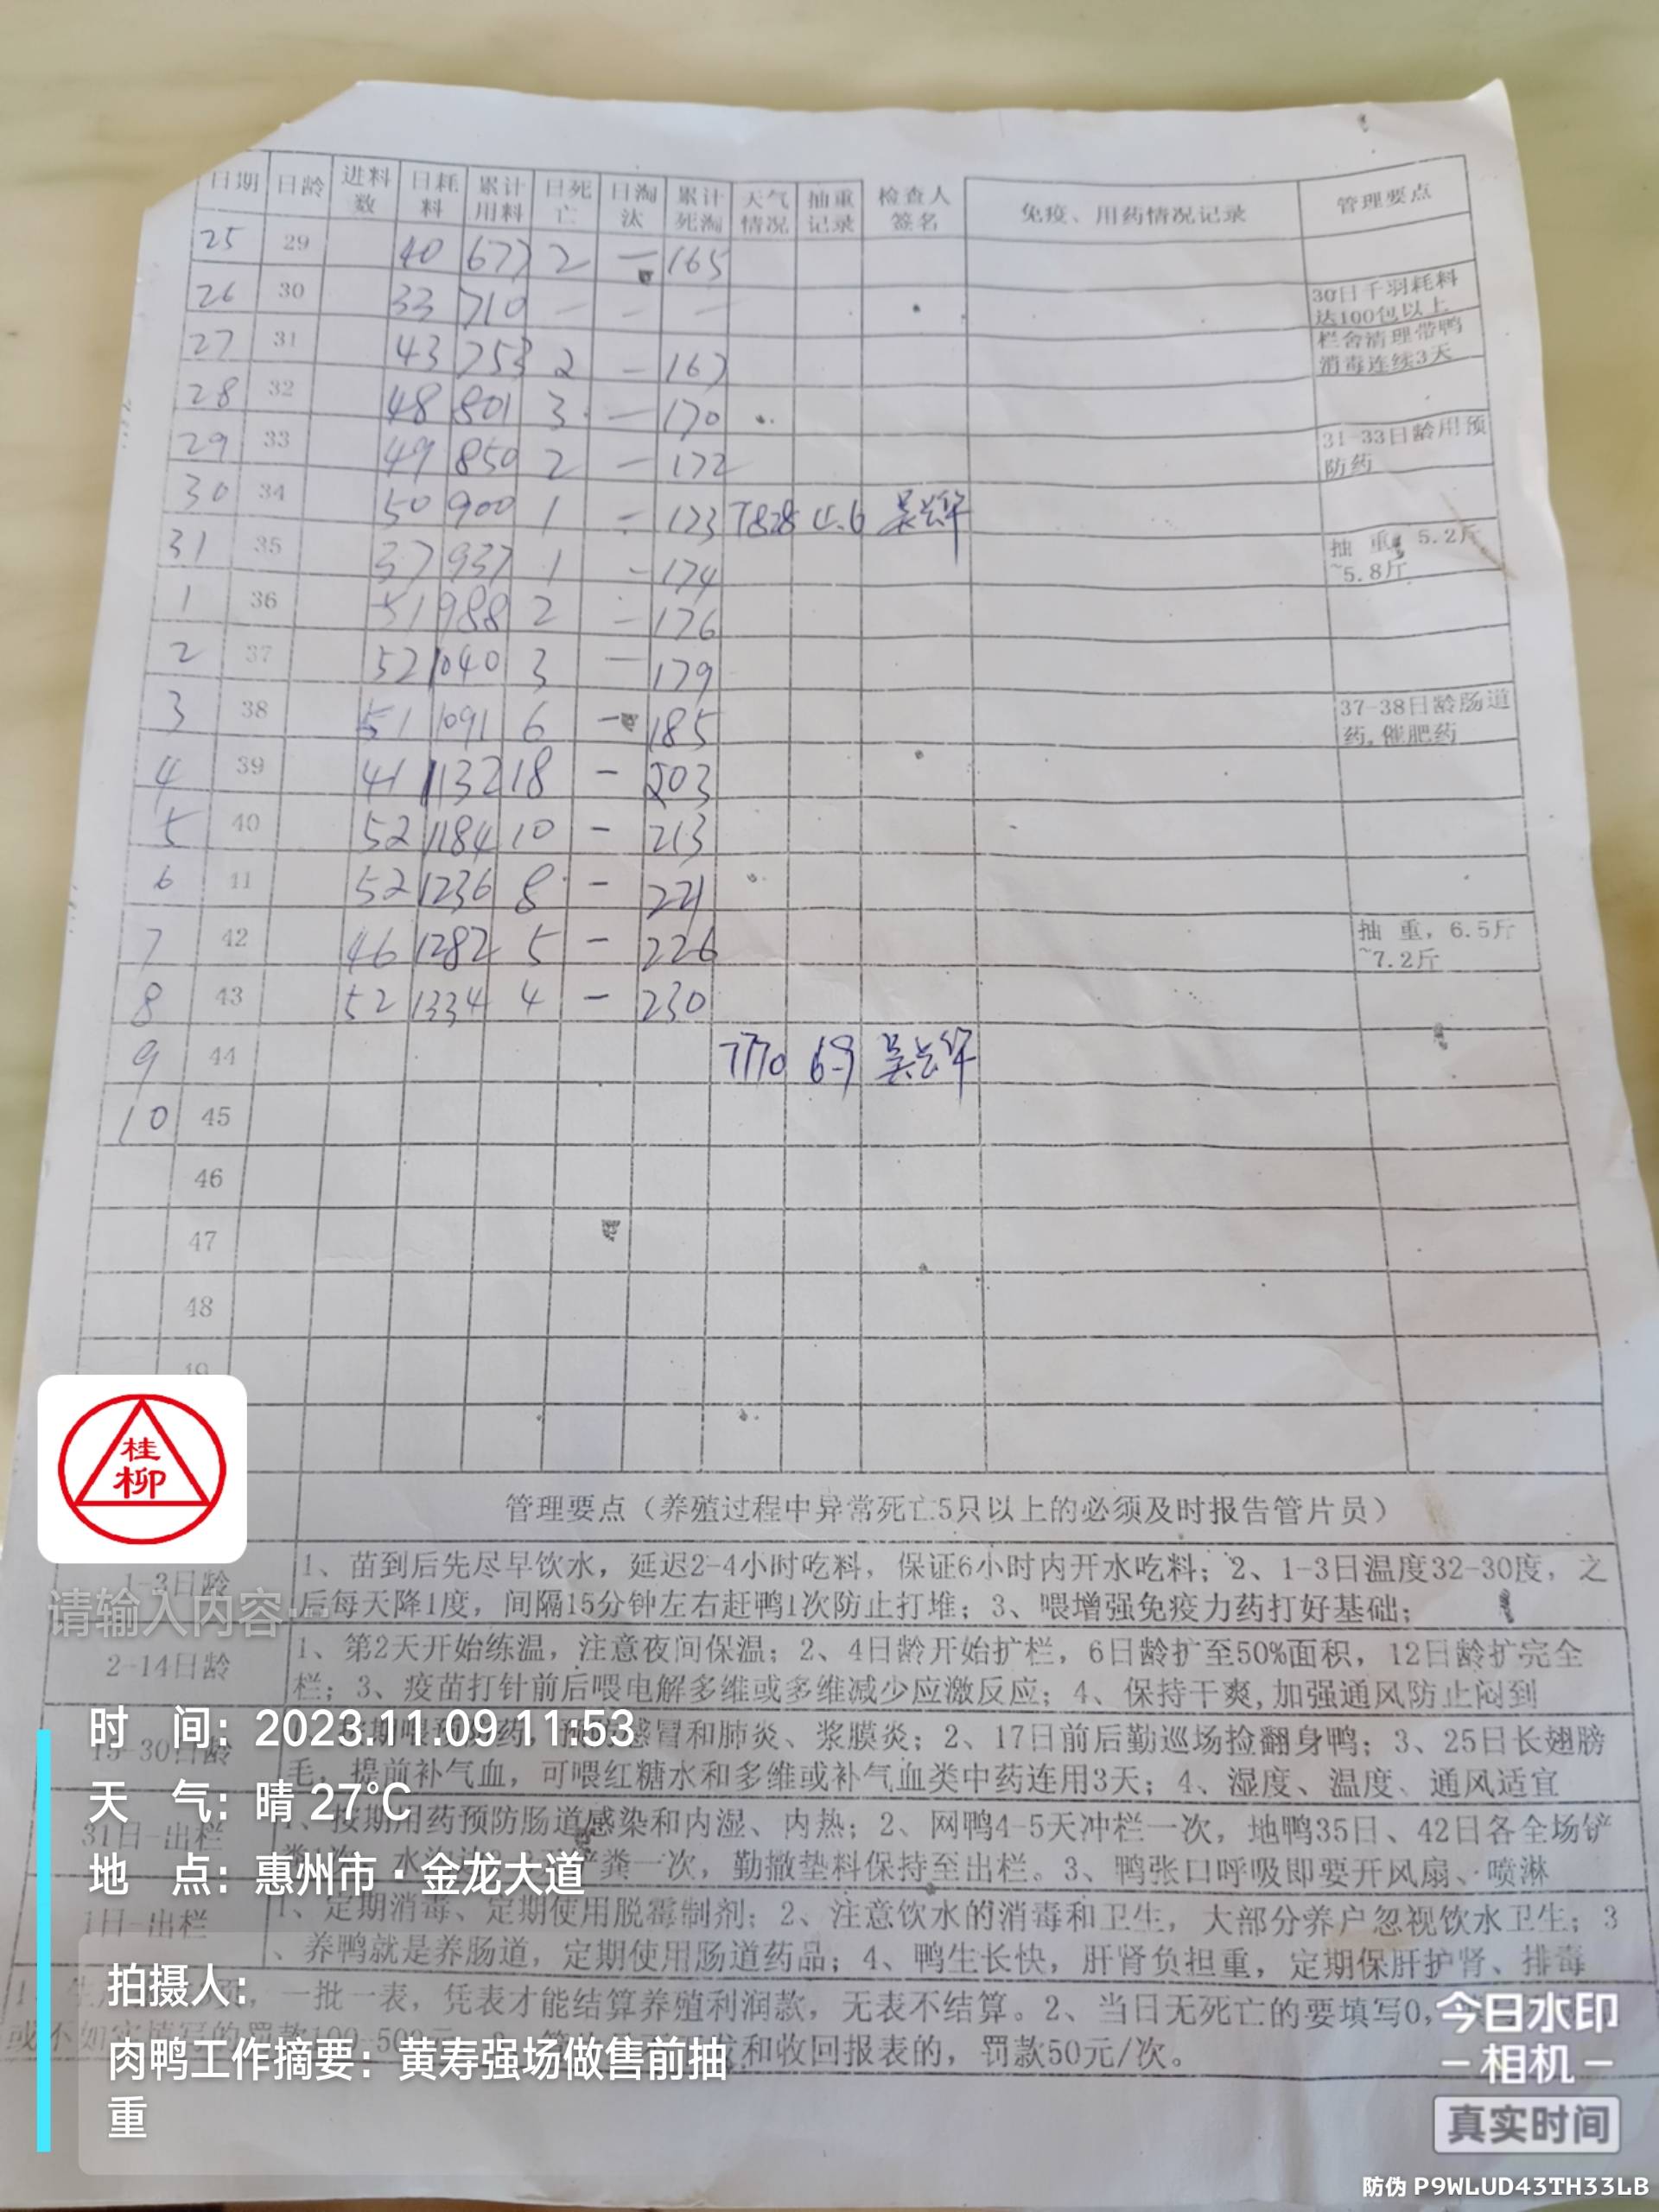 日期 日龄 进料数 日耗料 累计用料 日死亡 日淘汰 累计死淘 天气情况 抽重记录 检查人签名 免疫、用药情况记录 管理要点
25 29 40 677 2 — 165
26 30 33 710 — — — 30日千羽耗料达100包以上
27 31 43 753 2 — 167 栏舍清理带鸭消毒连续3天
28 32 48 801 3 — 170
29 33 49 850 2 — 172 31-33日龄用预防药
30 34 50 900 1 — 173 7828 4.6
31 35 37 937 1 — 174 抽重,5.2斤~5.8斤
1 36 51 988 2 — 176
2 37 52 1040 3 — 179
3 38 51 1091 6 — 185 37-38日龄肠道药,催肥药
4 39 41 1132 18 — 203
5 40 52 1184 10 — 213
6 41 52 1236 8 — 221
7 42 46 1282 5 — 226 抽重,6.5斤~7.2斤
8 43 52 1334 4 — 230
9 44 7770 6.9
10 45
46
47
48
桂柳
管理要点（养殖过程中异常死亡5只以上的必须及时报告管片员）
1-3日龄 1、苗到后先尽早饮水，延迟2-4小时吃料，保证6小时内开水吃料；2、1-3日温度32-30度，之
后每天降1度，间隔15分钟左右赶鸭1次防止打堆；3、喂增强免疫力药打好基础；
请输入内容…
2-14日龄 1、第2天开始练温，注意夜间保温；2、4日龄开始扩栏，6日龄扩至50%面积，12日龄扩完全
栏；3、疫苗打针前后喂电解多维或多维减少应激反应；4、保持干爽,加强通风防止闷到
15-30日龄 感冒和肺炎、浆膜炎；2、17日前后勤巡场捡翻身鸭；3、25日长翅膀
毛，提前补气血，可喂红糖水和多维或补气血类中药连用3天；4、湿度、温度、通风适宜
31日-出栏 、按期用药预防肠道感染和内湿、内热；2、网鸭4-5天冲栏一次，地鸭35日、42日各全场铲
铲粪一次，勤撒垫料保持至出栏。3、鸭张口呼吸即要开风扇、喷淋
1日-出栏 1、定期消毒、定期使用脱霉制剂；2、注意饮水的消毒和卫生，大部分养户忽视饮水卫生；3
、养鸭就是养肠道，定期使用肠道药品；4、鸭生长快，肝肾负担重，定期保肝护肾、排毒
，一批一表，凭表才能结算养殖利润款，无表不结算。2、当日无死亡的要填写0,
和收回报表的，罚款50元/次。
时 间：2023.11.09 11:53
天 气：晴 27℃
地 点：惠州市·金龙大道
拍摄人：
肉鸭工作摘要：黄寿强场做售前抽
重
今日水印
相机
真实时间
防伪 P9WLUD43TH33LB